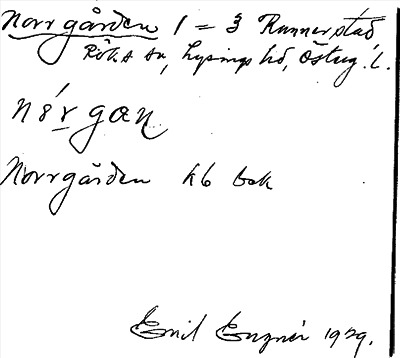 Norrgården 1 = 3 Runnerstad
Röks sn, Lysings hd, Östug. l.
nórgæn
Norrgården kb bok
Emil 1929.